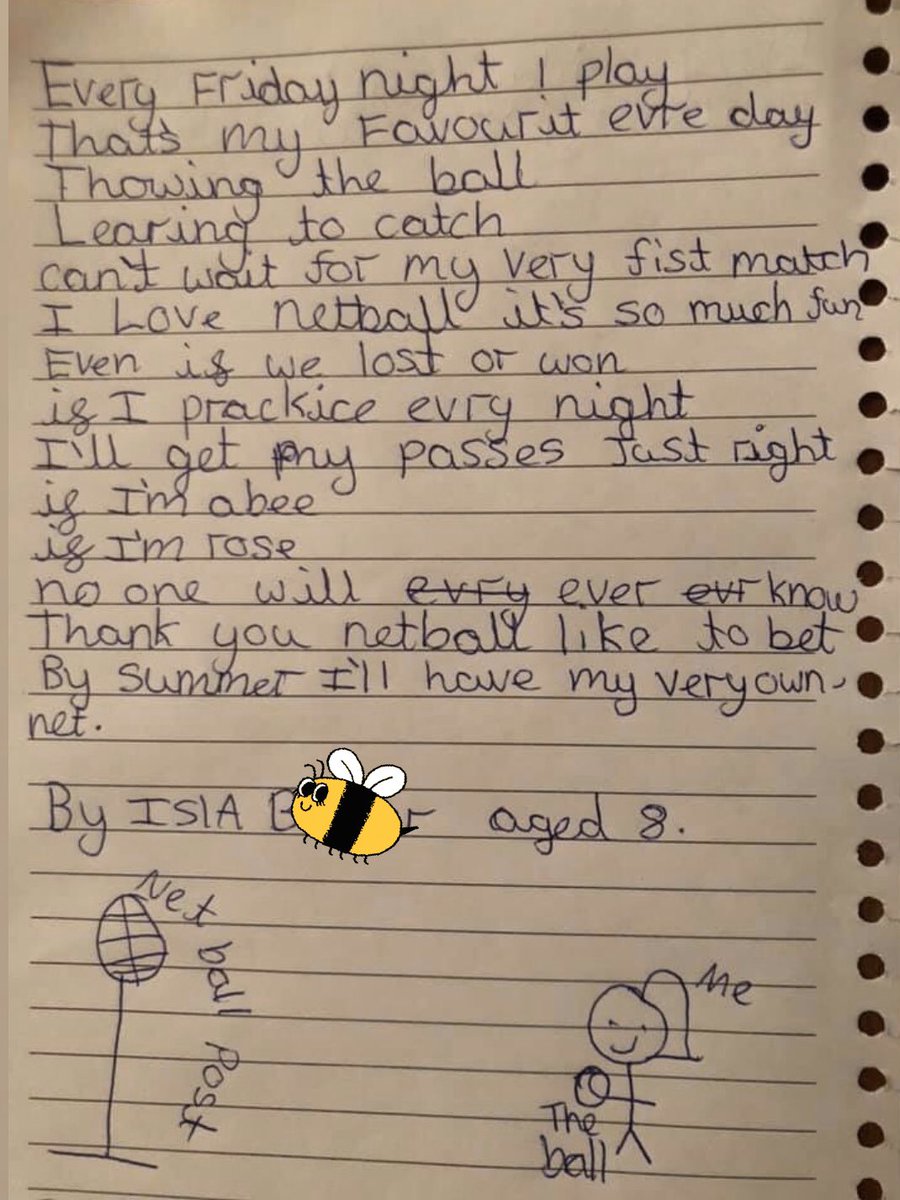 Every Friday night I play
That's my Favourit evre day
Thowing the ball
Learing to catch
can't wait for my very fist match
I Love netball it's so much fun
Even if we lost or won
if I prackice evry night
I'll get my passes Just right
if I'm a bee
if I'm rose
no one will evry ever evr know
Thank you netball like to bet
By Summer I'll have my very own
net.
By ISlA aged 8.
Net ball Post
Me
The
ball